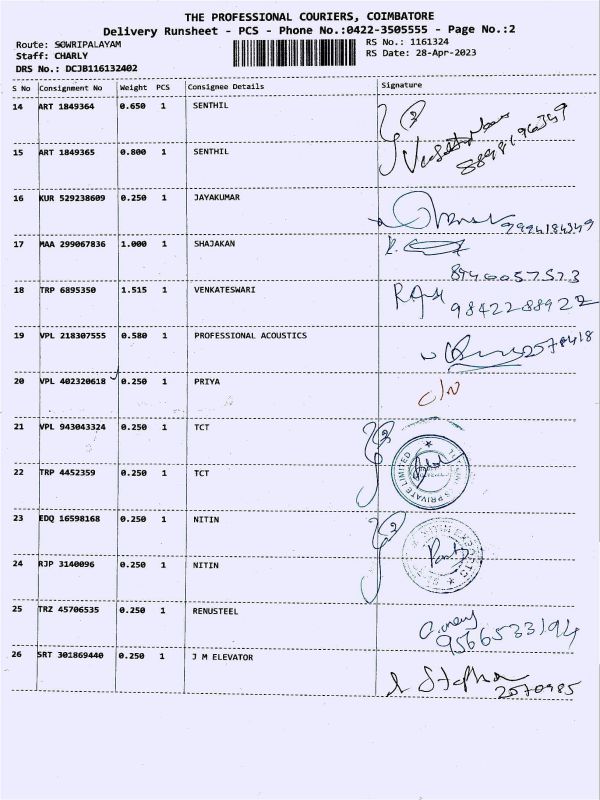 THE PROFESSIONAL COURIERS, COIMBATORE
Delivery Runsheet - PCS - Phone No.:0422-3505555 - Page No.:2
Route: SOWRIPALAYAM RS No.: 1161324
Staff: CHARLY RS Date: 28-Apr-2023
DRS No.: DCJB116132402
S No Consignment No Weight PCS Consignee Details Signature
14 ART 1849364 0.650 1 SENTHIL
15 ART 1849365 0.800 1 SENTHIL
16 KUR 529238609 0.250 1 JAYAKUMAR
9994184349
17 MAA 299067836 1.000 1 SHAJAKAN
8940057573
18 TRP 6895350 1.515 1 VENKATESWARI
9842288922
19 VPL 218307555 0.580 1 PROFESSIONAL ACOUSTICS
2578418
20 VPL 402320618 0.250 1 PRIYA
21 VPL 943043324 0.250 1 TCT
PRIVATE LIMITED
22 TRP 4452359 0.250 1 TCT
23 EDQ 16598168 0.250 1 NITIN
24 RJP 3140096 0.250 1 NITIN
25 TRZ 45706535 0.250 1 RENUSTEEL
9566533194
26 SRT 301869440 0.250 1 J M ELEVATOR
2570985